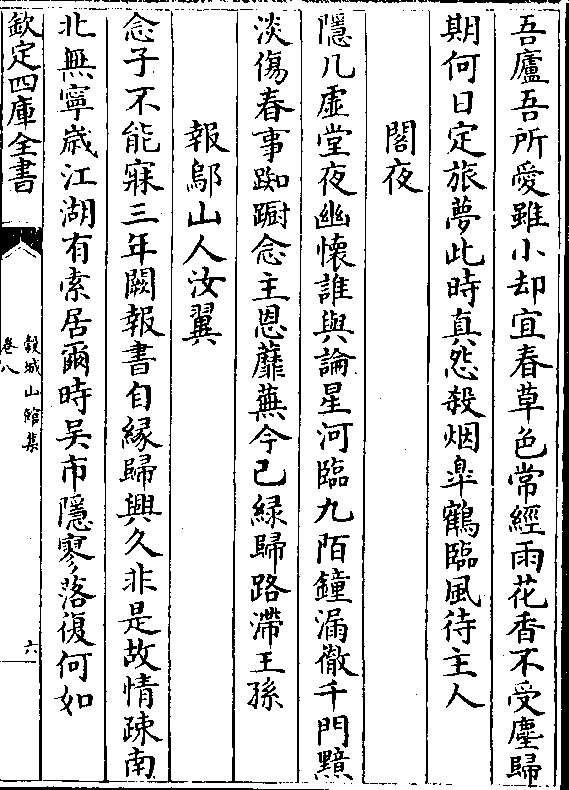 吾廬吾所愛雖小却宜春草色常經雨花香不受塵歸
期何日定旅夢此時真怨殺烟皐鶴臨風待主人
閣夜
隱几虛堂夜幽懷誰與論星河臨九陌鐘漏徹千門黯
淡傷春事踟蹰念主恩蘼蕪今已緑歸路滯王孫
報鄔山人汝翼
念子不能寐三年闕報書自縁歸興久非是故情疎南
北無寧歳江湖有索居爾時吴市隱寥落復何如
欽定四庫全書
榖城山館集
卷八
六